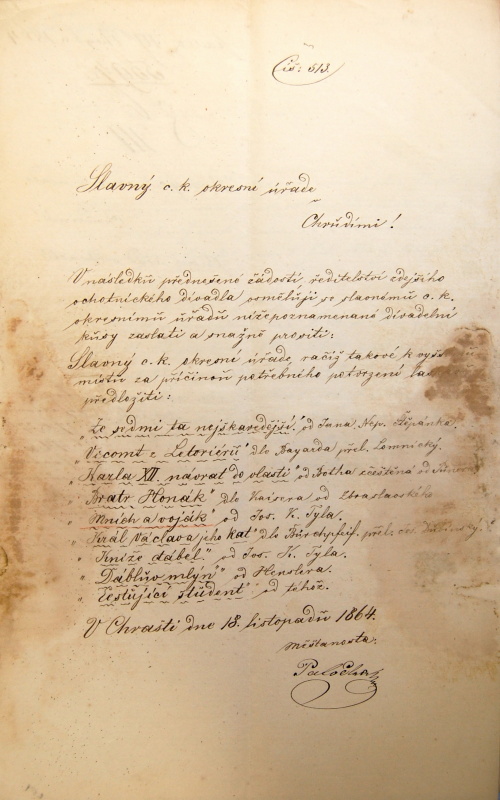 Čís: 513.
Slavný c. k. okresní úřade
v
Chrudimi!
V následků přednešené žádosti, ředitelství zdejšího
ochotnického divadla osměluji se slavnému c. k.
okresnímu úřadu nížepoznamenané divadelní
kusy zaslati a snažně prositi:
Slavný c. k. okresní úřade, račiž takové k vyšš
místu za příčinou potřebného potvrzení las
předložiti:
„Ze sedmi ta nejškaredější." od Jana Nep. Štěpánka,
„Vicomt z Letoriérů" dle Bayarda přel. Lomnický.
„Karla XII. návrat do vlasti" od Botha zčeštěná od
„Bratr Honák" dle Kaisera od Zbraslavského
„Mnich a voják" od Jos. K. Tyla,
„Král Václav a jeho kat" dle Birchpfeif. přel.
„Kníže ďábel." od Jos. K. Tyla,
„Ďáblův mlýn" od Henslera.
„Cestující student" od téhož.
V Chrasti dne 18. listopadu 1864.
měšťanosta.